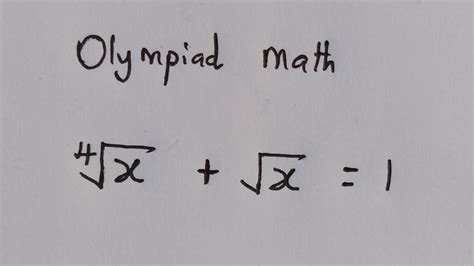 Olympiad math
∜x + √x = 1